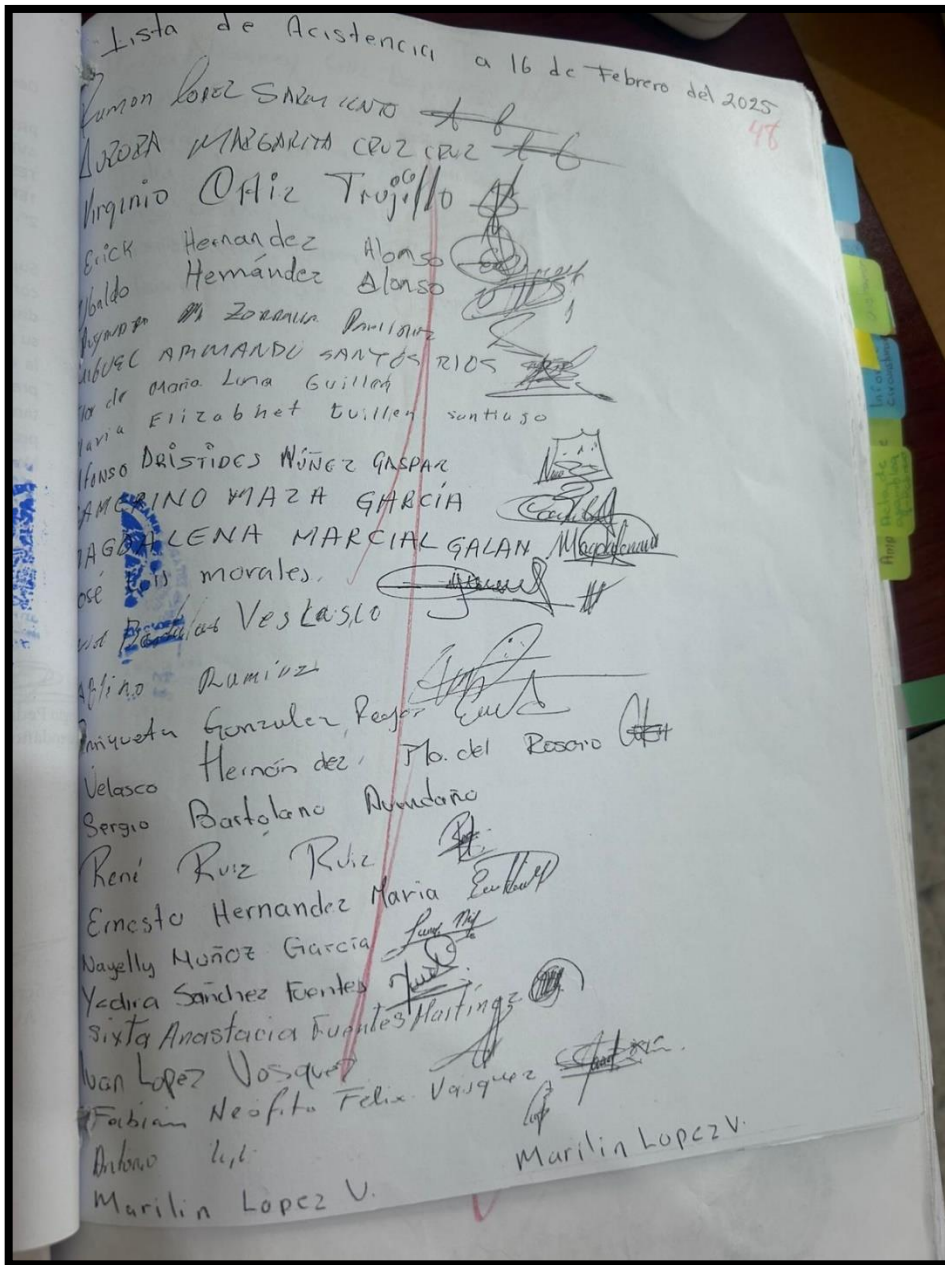 Lista de Acistencia a 16 de Febrero del 2025
48
Ramon LOPEZ SARMIENTO
AURORA MARGARITA CRUZ CRUZ
Virginio Ortiz Trujillo
Erick Hernandez Alonso
Ubaldo Hernández Alonso
ZORRILLA
MIGUEL ARMANDO SANTOS RIOS
Flor de María Luna Guillen
Maria Elizabhet Guillen santiago
Alfonso ARISTIDES NÚÑEZ GASPAR
CAMERINO MAZA GARCÍA
MAGDALENA MARCIAL GALAN Magdalena
José luis morales.
Ramirez
Enriqueta Gonzalez
Velasco Hernández Ma. del Rosario
Sergio Bartolano Avendaño
René Ruiz Ruiz
Ernesto Hernandez Maria
Nayelly Muñoz García
Yadira Sánchez Fuentes
Sixta Anastacia Fuentes Martínez
Juan Lopez Vasquez
Fabian Neofito Felix Vasquez
Antonio
Marilin Lopez V. Marilin Lopez V.